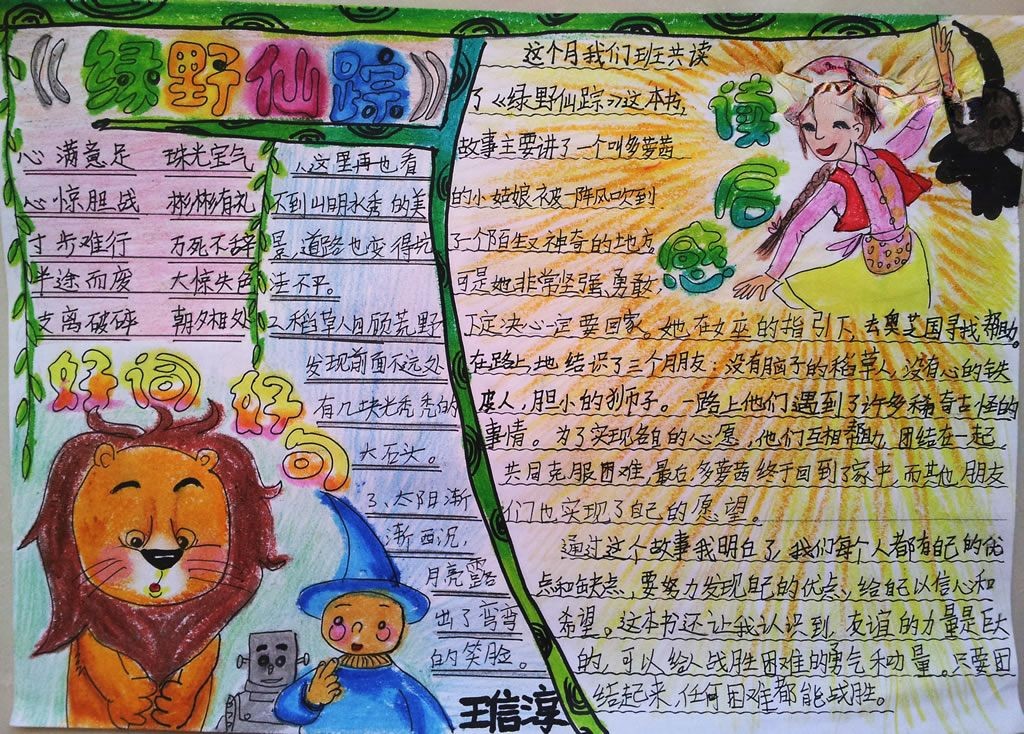 《绿野仙踪》
心满意足 珠光宝气
心惊胆战 彬彬有礼
寸步难行 万死不辞
半途而废 大惊失色
支离破碎 朝夕相处
好词好句
1、这里再也看
不到山明水秀的美
景,道路也变得坑
洼不平。
2、稻草人回顾荒野
发现前面不远处
有几块光秃秃的
大石头。
3、太阳渐
渐西沉,
月亮露
出了弯弯
的笑脸。
王信淳
读后感
这个月我们班共读
了《绿野仙踪》这本书,
故事主要讲了一个叫多萝茜
的小姑娘被一阵风吹到
了一个陌生又神奇的地方
可是她非常坚强、勇敢
下定决心一定要回家。她在女巫的指引下,去奥芝国寻找帮助。
在路上她结识了三个朋友:没有脑子的稻草人,没有心的铁
皮人,胆小的狮子。一路上他们遇到了许多稀奇古怪的
事情。为了实现各自的心愿,他们互相帮助,团结在一起
共同克服困难,最后,多萝茜终于回到了家中,而其他朋友
们也实现了自己的愿望。
通过这个故事我明白了,我们每个人都有自己的优
点和缺点,要努力发现自己的优点,给自己以信心和
希望。这本书还让我认识到,友谊的力量是巨大
的,可以给人战胜困难的勇气和力量。只要团
结起来,任何困难都能战胜。